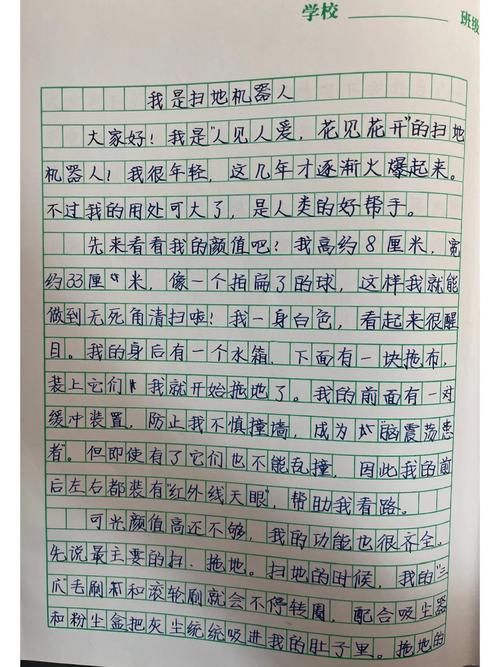 学校
班级
我是扫地机器人
大家好！我是“人见人爱，花见花开”的扫地
机器人！我很年轻，这几年才逐渐火爆起来。
不过我的用处可大了，是人类的好帮手。
先来看看我的颜值吧！我高约8厘米，宽
约33厘米，像一个拍扁了的球，这样我就能
做到无死角清扫啦！我一身白色，看起来很醒
目。我的身后有一个水箱，下面有一块拖布，
装上它们我就开始拖地了。我的前面有一对
缓冲装置，防止我不慎撞墙，成为“脑震荡患
者”。但即使有了它们也不能乱撞，因此我的前
后左右都装有“红外线天眼”，帮助我看路。
可光颜值高还不够，我的功能也很齐全。
先说最主要的扫、拖地。扫地的时候，我的“三
爪毛刷”和滚轮刷就会不停转圈，配合吸尘器
和粉尘盒把灰尘统统吸进我的肚子里。拖地的